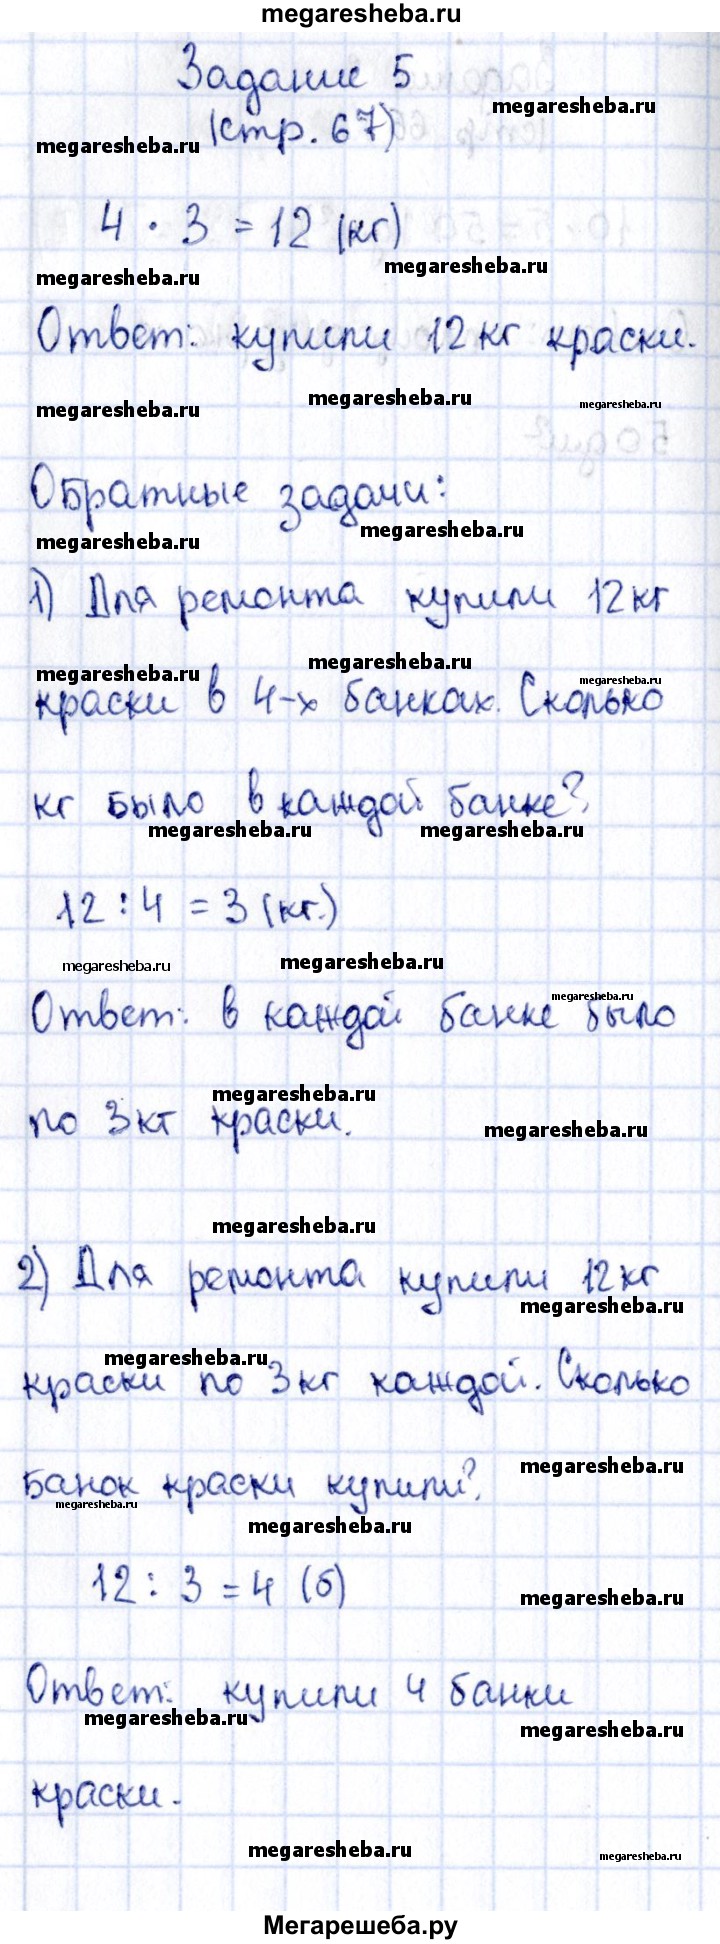 megaresheba.ru
Задание 5
megaresheba.ru
(стр. 67)
megaresheba.ru
4 · 3 = 12 (кг)
megaresheba.ru
megaresheba.ru
Ответ: купили 12 кг краски.
megaresheba.ru
megaresheba.ru
megaresheba.ru
Обратные задачи:
megaresheba.ru
megaresheba.ru
1) Для ремонта купили 12 кг
megaresheba.ru
megaresheba.ru
megaresheba.ru
краски в 4-х банках. Сколько
кг было в каждой банке?
megaresheba.ru
megaresheba.ru
12 : 4 = 3 (кг.)
megaresheba.ru
megaresheba.ru
megaresheba.ru
Ответ: в каждой банке было
megaresheba.ru
по 3 кг краски.
megaresheba.ru
megaresheba.ru
2) Для ремонта купили 12 кг
megaresheba.ru
megaresheba.ru
краски по 3 кг каждой. Сколько
megaresheba.ru
банок краски купили?
megaresheba.ru
megaresheba.ru
12 : 3 = 4 (б)
megaresheba.ru
Ответ: купили 4 банки
megaresheba.ru
megaresheba.ru
краски.
megaresheba.ru
megaresheba.ru
Мегарешеба.ру